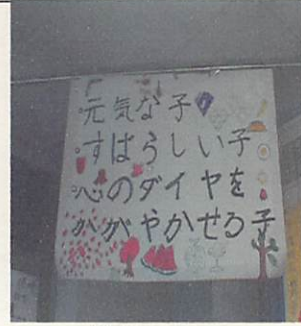 元気な子
すばらしい子
心のダイヤを
かがやかせる子